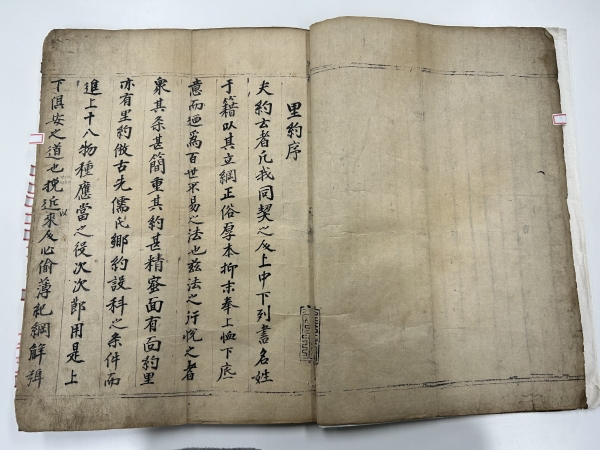 里約序
夫約玄者凡我同契之民上中下列書名姓
于籍以其立綱正俗厚本抑末奉上恤下底
意而迊爲百世不易之法也玆法之行悅之者
衆其条甚簡重其約甚精蜜面有面約里
亦有里約倣古先儒氏鄉約設科之条件而
進上十八物種應當之役次次郎用是上
下俱安之道也挽近以來民心偷薄紀綱觧弛